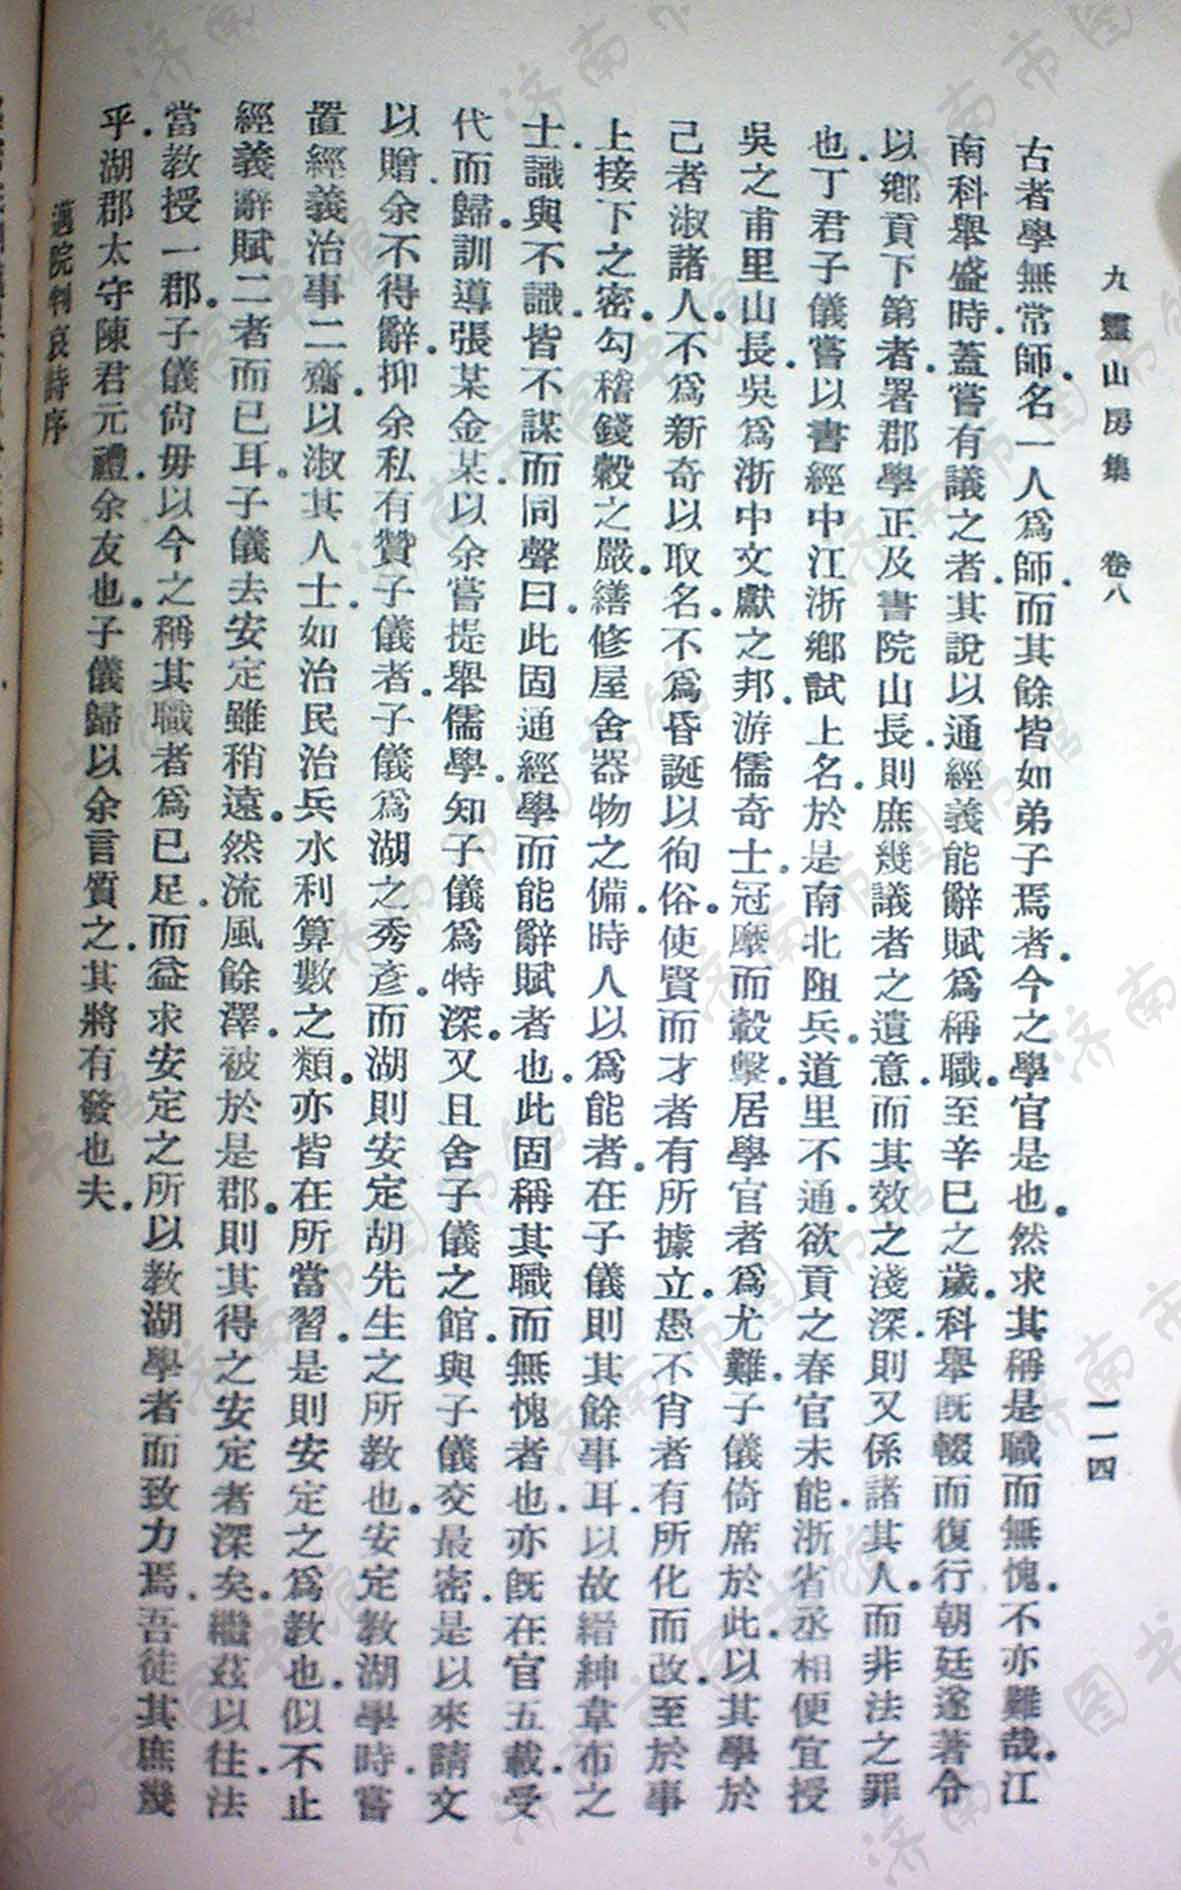 九靈山房集 卷八
一一四
古者學無常師.名一人爲師.而其餘皆如弟子焉者.今之學官是也.然求其稱是職而無愧.不亦難哉.江
南科舉盛時.蓋嘗有議之者.其說以通經義能辭賦爲稱職.至辛巳之歲.科舉既輟而復行.朝廷遂著令
以鄉貢下第者.署郡學正及書院山長.則庶幾議者之遺意.而其效之淺深.則又係諸其人.而非法之罪
也.丁君子儀嘗以書經中江浙鄉試上名.於是南北阻兵.道里不通.欲貢之春官未能.浙省丞相便宜授
吳之甫里山長.吳爲浙中文獻之邦.游儒奇士.冠縻而轂擊.居學官者爲尤難.子儀倚席於此.以其學於
己者淑諸人.不爲新奇以取名.不爲昏誕以徇俗.使賢而才者有所據立.愚不肖者有所化而改.至於事
上接下之密.勾稽錢穀之嚴.繕修屋舍器物之備.時人以爲能者.在子儀則其餘事耳.以故縉紳韋布之
士.識與不識.皆不謀而同聲曰.此固通經學而能辭賦者也.此固稱其職而無愧者也.亦既在官五載.受
代而歸.訓導張某金某.以余嘗提舉儒學.知子儀爲特深.又且舍子儀之館.與子儀交最密.是以來請文
以贈.余不得辭.抑余私有贊子儀者.子儀爲湖之秀彥.而湖則安定胡先生之所教也.安定教湖學時.嘗
置經義治事二齋.以淑其人士.如治民治兵水利算數之類.亦皆在所當習.是則安定之爲教也.似不止
經義辭賦二者而已耳.子儀去安定雖稍遠.然流風餘澤.被於是郡.則其得之安定者深矣.繼茲以往.法
當教授一郡.子儀尙毋以今之稱其職者爲已足.而益求安定之所以教湖學者而致力焉.吾徒其庶幾
乎.湖郡太守陳君元禮.余友也.子儀歸以余言質之.其將有發也夫.
邁院判哀詩序